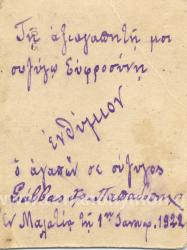 Τῇ ἀξιαγαπητῇ μοι
συζύγῳ Εὐφροσύνῃ
ἐνθύμιον
ὁ ἀγαπῶν σε σύζυγος
Σάββας Χρ. Παπαδόπ
ἐν Μαλατίᾳ τῇ 1ῃ Ἰανουαρ. 1922